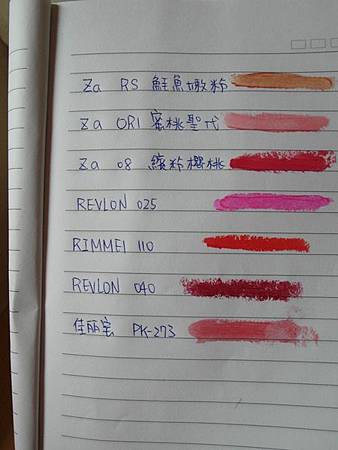 Za RS 鮭魚嫩粉
Za OR1 蜜桃聖代
Za 08 繽粉櫻桃
REVLON 025
RIMMEl 110
REVLON 040
佳丽宝 PK-273